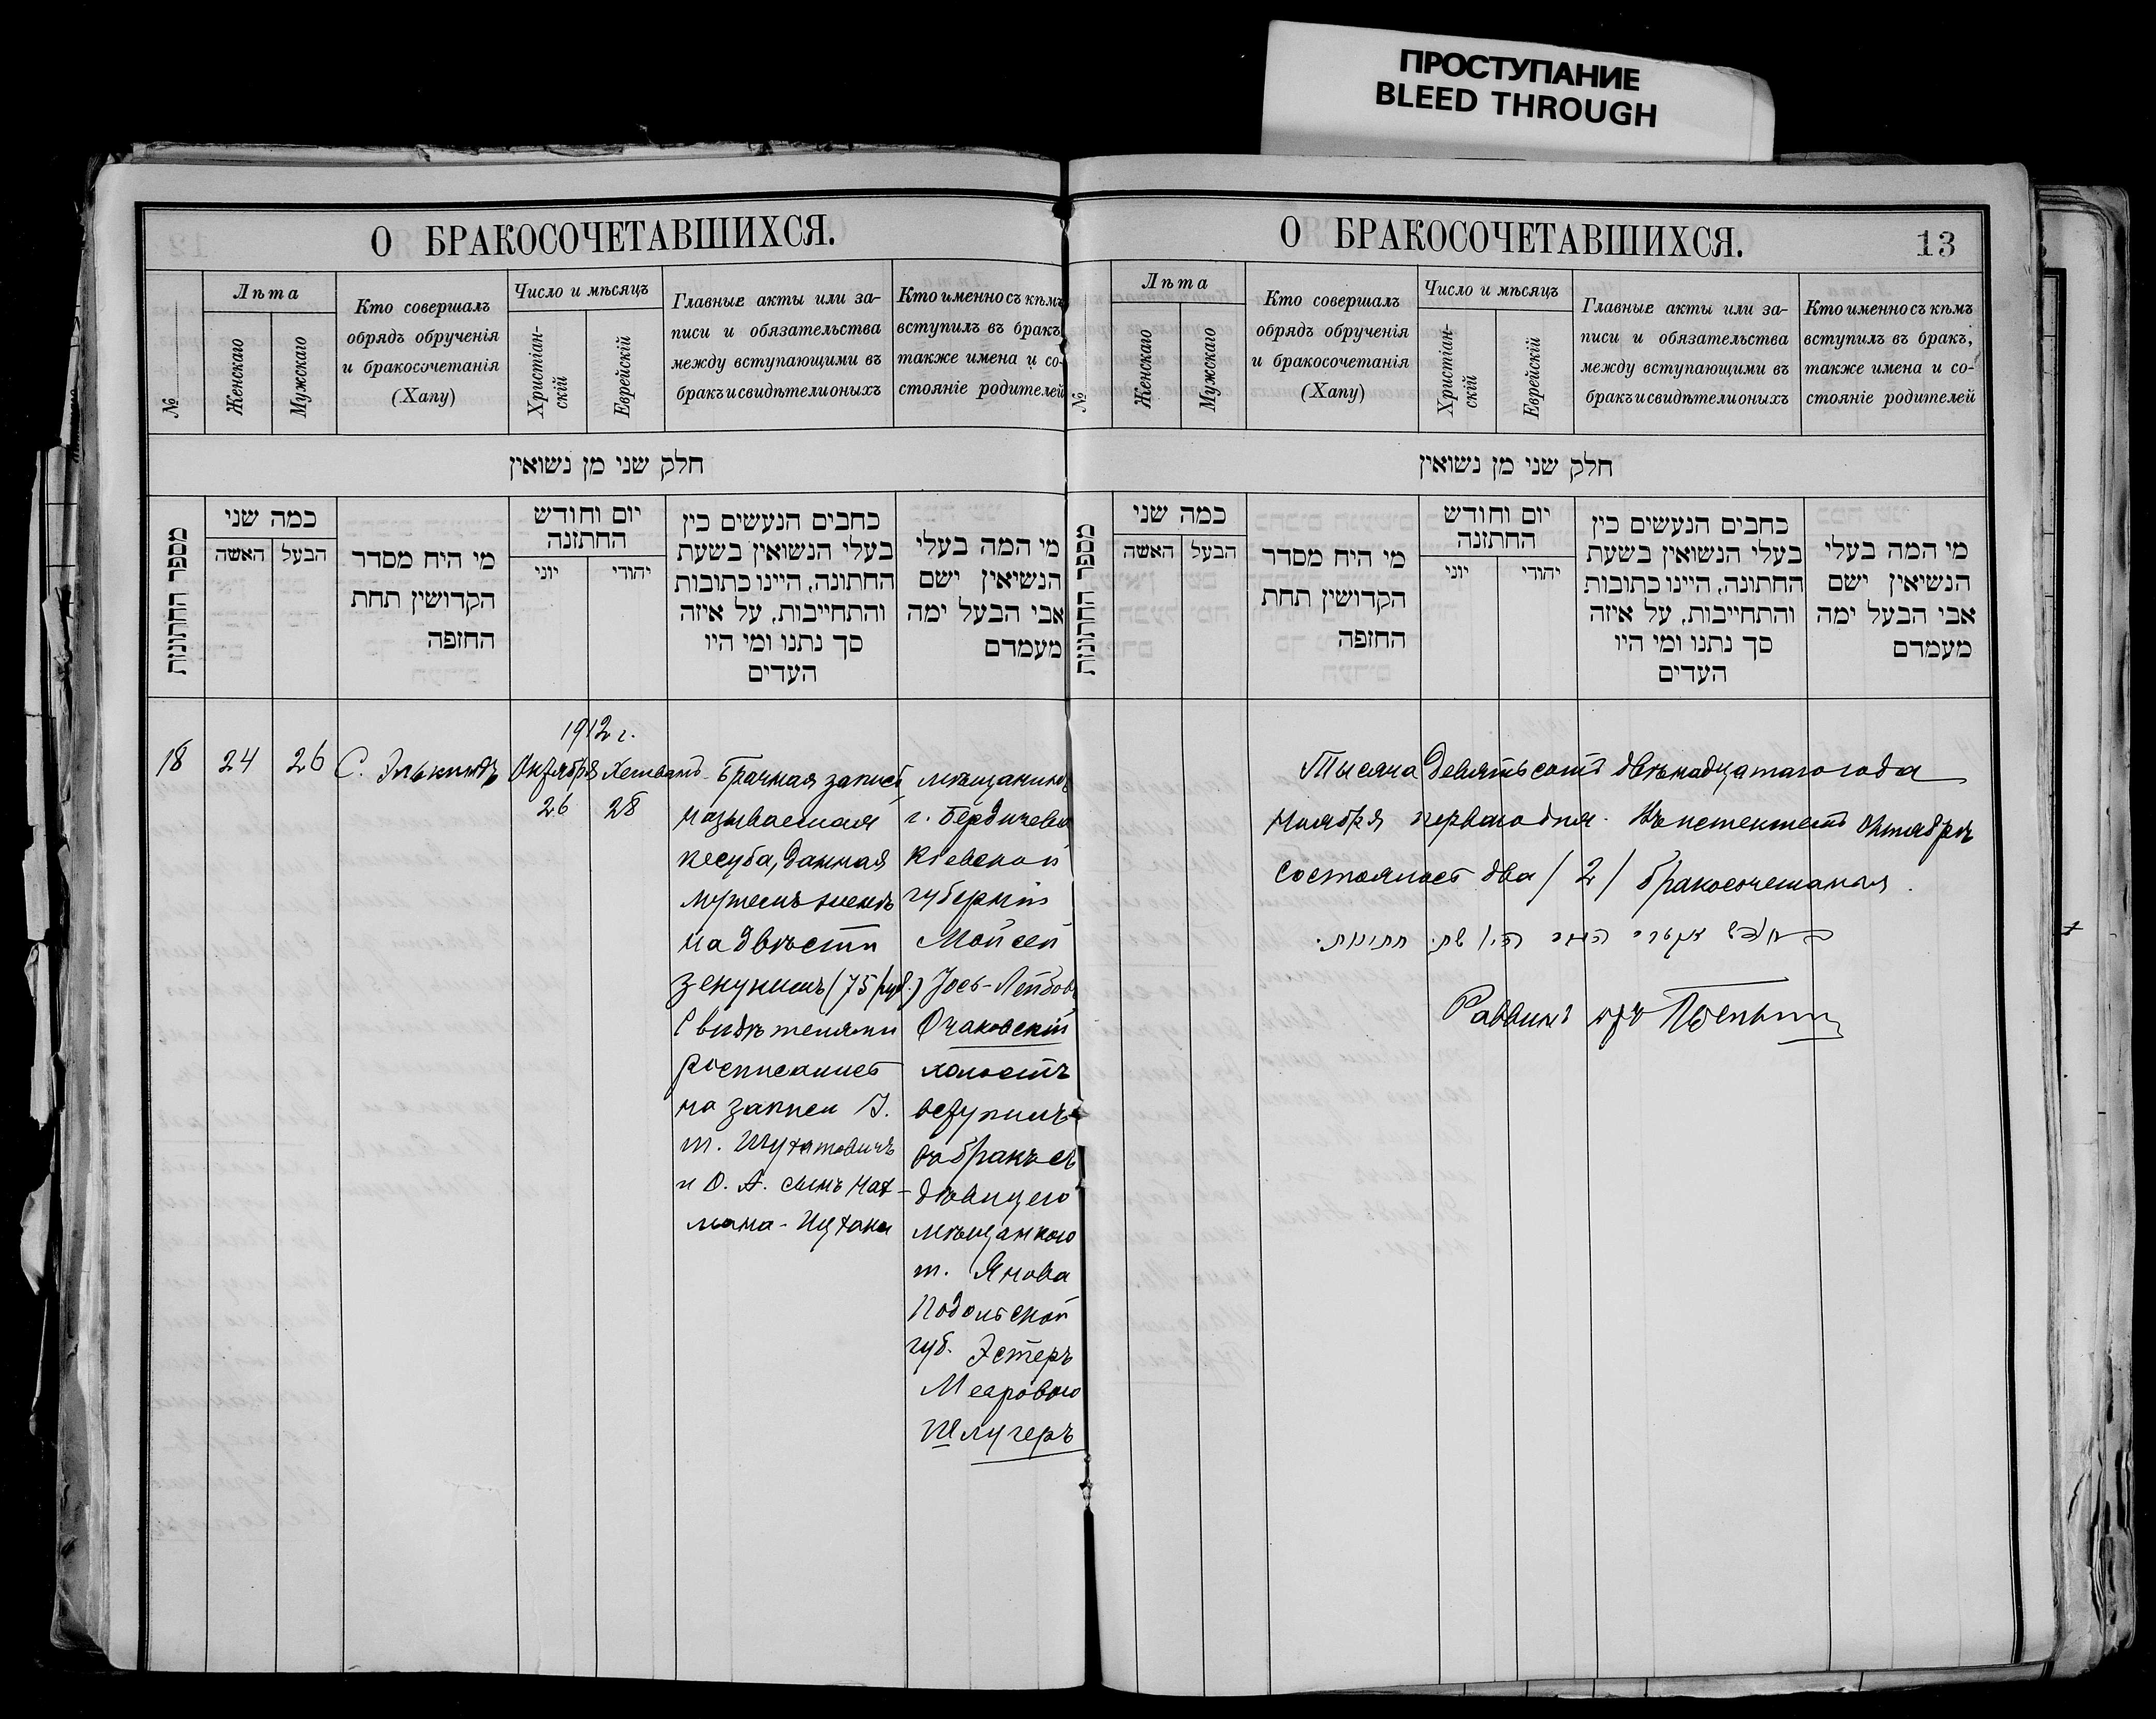 ПРОСТУПАНИЕ
BLEED THROUGH
О БРАКОСОЧЕТАВШИХСЯ.
№
Лѣта
Женскаго
Мужскаго
Кто совершалъ
обрядъ обрученія
и бракосочетанія
(Хапу)
Число и мѣсяцъ
Христіан-
скій
Еврейскій
Главные акты или за-
писи и обязательства
между вступающими въ
бракъ и свидѣтели оныхъ
Кто именно съ кѣмъ
вступилъ въ бракъ,
также имена и со-
стояніе родителей
חלק שני מן נשואין
מספר החתונות
כמה שני
האשה
הבעל
מי היח מסדר
הקדושין תחת
החזפה
יום וחודש
החתזנה
יוני
יהודי
כחבים הנעשים כין
בעלי הנשואין בשעת
החתונה, היינו כתובות
והתחייבות, על איזה
סך נתנו ומי היו
העדים
מי המה בעלי
הנשיאין ישם
אבי הבעל ימה
מעמדם
1912 г.
18
24
26
С. Элькиндъ
Октября
26
Хешванъ
28
Брачная запись
называемая
кесуба, данная
мужемъ женѣ
на двѣсти
зекукимъ (75 руб.)
Свидѣтелями
росписались
на записи І.
и О. А. сынъ Нах-
мана-
мѣщанинъ
г. Бердичева
Кіевской
губерніи
Мойсей
Іось-Лейбовъ
Очаковскій
холостъ
вступилъ
въ бракъ съ
дѣвицею
мѣщанкою
м. Янова
Подольской
губ. Эстеръ
Мееровою
Шлугеръ
О БРАКОСОЧЕТАВШИХСЯ.
13
№
Лѣта
Женскаго
Мужскаго
Кто совершалъ
обрядъ обрученія
и бракосочетанія
(Хапу)
Число и мѣсяцъ
Христіан-
скій
Еврейскій
Главные акты или за-
писи и обязательства
между вступающими въ
бракъ и свидѣтели оныхъ
Кто именно съ кѣмъ
вступилъ въ бракъ,
также имена и со-
стояніе родителей
חלק שני מן נשואין
מספר החתונות
כמה שני
האשה
הבעל
מי היח מסדר
הקדושין תחת
החזפה
יום וחודש
החתזנה
יוני
יהודי
כחבים הנעשים כין
בעלי הנשואין בשעת
החתונה, היינו כתובות
והתחייבות, על איזה
סך נתנו ומי היו
העדים
מי המה בעלי
הנשיאין ישם
אבי הבעל ימה
מעמדם
Тысяча девятьсотъ двѣнадцатаго года
ноября перваго дня. Въ истекшемъ Октябрѣ
состоялось два / 2 / бракосочетанія.
Раввинъ